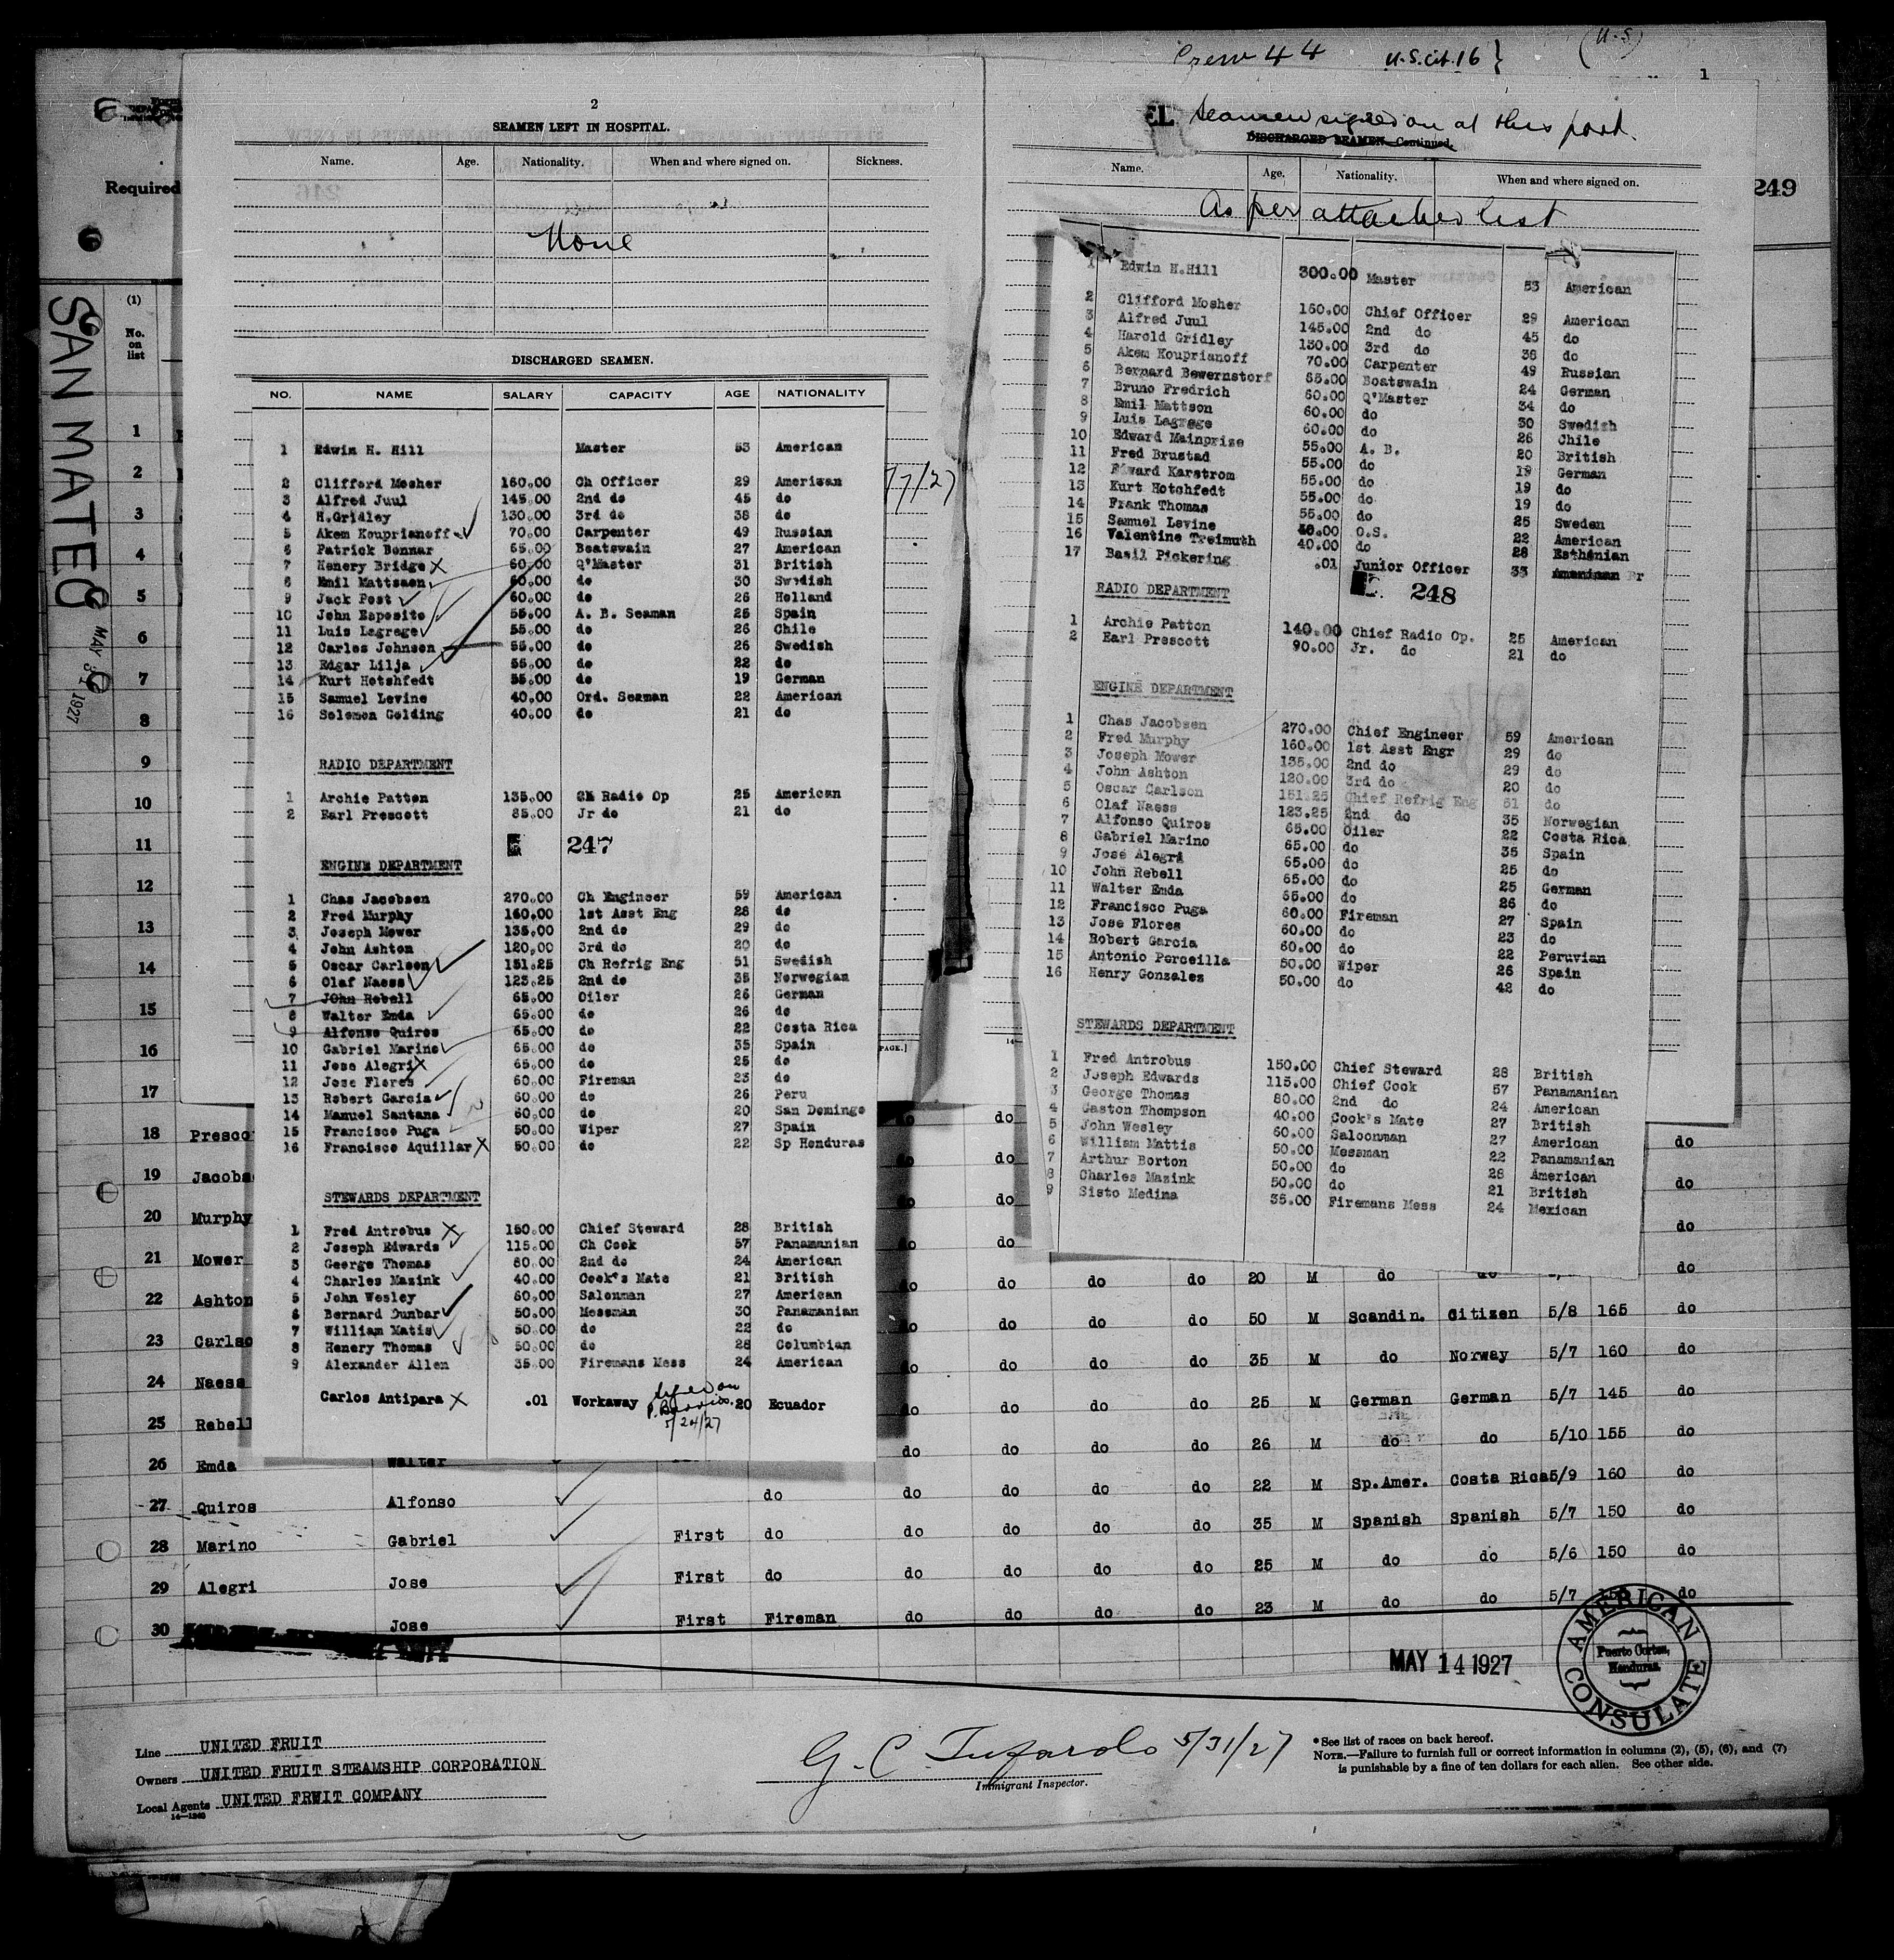 Crew 44 U.S.cit.16 } (U.S)
1
2
SEAMEN LEFT IN HOSPITAL.
Name. Age. Nationality. When and where signed on. Sickness.
None
DISCHARGED SEAMEN.
NO. NAME SALARY CAPACITY AGE NATIONALITY
1 Edwin H. Hill Master 53 American
2 Clifford Mosher 160.00 Ch Officer 29 American
3 Alfred Juul 145.00 2nd do 45 do
4 H.Gridley 130.00 3rd do 38 do
5 Akem Kouprianoff 70.00 Carpenter 49 Russian
6 Patrick Bonnar 65.00 Boatswain 27 American
7 Henery Bridge X 60.00 Q'Master 31 British
8 Emil Mattsaen 60.00 do 30 Swedish
9 Jack Post 60.00 do 26 Holland
10 John Esposito 55.00 A. B. Seaman 25 Spain
11 Luis Lagrege 55.00 do 26 Chile
12 Carlos Johnson 55.00 do 26 Swedish
13 Edgar Lilja 55.00 do 22 do
14 Kurt Hotshfedt 55.00 do 19 German
15 Samuel Levine 40.00 Ord. Seaman 22 American
16 Solomon Golding 40.00 do 21 do
RADIO DEPARTMENT
1 Archie Patton 135.00 Ch Radio Op 25 American
2 Earl Prescott 85.00 Jr do 21 do
247
ENGINE DEPARTMENT
1 Chas Jacobsen 270.00 Ch Engineer 59 American
2 Fred Murphy 160.00 1st Asst Eng 28 do
3 Joseph Mower 135.00 2nd do 29 do
4 John Ashton 120.00 3rd do 20 do
5 Oscar Carlson 151.25 Ch Refrig Eng 51 Swedish
6 Olaf Naess 123.25 2nd do 35 Norwegian
7 John Rebell 65.00 Oiler 26 German
8 Walter Emda 65.00 do 26 do
9 Alfonso Quiros 65.00 do 22 Costa Rica
10 Gabriel Marino 65.00 do 35 Spain
11 Jose Alegri X 65.00 do 25 do
12 Jose Flores 60.00 Fireman 23 do
13 Robert Garcia 60.00 do 26 Peru
14 Manuel Santana 60.00 do 20 San Domingo
15 Francisco Puga 50.00 Wiper 27 Spain
16 Francisco Aquillar X 50.00 do 22 Sp Honduras
STEWARDS DEPARTMENT
1 Fred Antrobus X 150.00 Chief Steward 28 British
2 Joseph Edwards 115.00 Ch Cook 57 Panamanian
3 George Thomas 80.00 2nd do 24 American
4 Charles Mazink 40.00 Cook's Mate 21 British
5 John Wesley 60.00 Salonman 27 American
6 Bernard Dunbar 50.00 Messman 30 Panamanian
7 William Matis 50.00 do 22 do
8 Henery Thomas 50.00 do 28 Columbian
9 Alexander Allen 35.00 Firemans Mess 24 American
Carlos Antipara X .01 Workaway 20 Ecuador
Signed on
P. Barrios.
5/24/27
Seamen signed on at this port.
DISCHARGED SEAMEN—Continued.
Name. Age. Nationality. When and where signed on.
As per attached list
1 Edwin H.Hill 300.00 Master 53 American
2 Clifford Mosher 160.00 Chief Officer 29 American
3 Alfred Juul 145.00 2nd do 45 do
4 Harold Gridley 130.00 3rd do 38 do
5 Akem Kouprianoff 70.00 Carpenter 49 Russian
6 Bernard Bewernstorf 65.00 Boatswain 24 German
7 Bruno Fredrich 60.00 Q'Master 34 do
8 Emil Mattson 60.00 do 30 Swedish
9 Luis Lagrege 60.00 do 26 Chile
10 Edward Mainprize 55.00 A. B. 20 British
11 Fred Brustad 55.00 do 19 German
12 Edward Karstrom 55.00 do 19 do
13 Kurt Hotchfedt 55.00 do 19 do
14 Frank Thomas 55.00 do 25 Sweden
15 Samuel Levine 40.00 O.S. 22 American
16 Valentine Treimuth 40.00 do 28 Esthanian
17 Basil Pickering .01 Junior Officer 33 American Br
248
RADIO DEPARTMENT
1 Archie Patton 140.00 Chief Radio Op. 25 American
2 Earl Prescott 90.00 Jr. do 21 do
ENGINE DEPARTMENT
1 Chas Jacobsen 270.00 Chief Engineer 59 American
2 Fred Murphy 160.00 1st Asst Engr 29 do
3 Joseph Mower 135.00 2nd do 29 do
4 John Ashton 120.00 3rd do 20 do
5 Oscar Carlson 151.25 Chief Refrig Eng 51 do
6 Olaf Naess 123.25 2nd do 35 Norwegian
7 Alfonso Quiros 65.00 Oiler 22 Costa Rica
8 Gabriel Marino 65.00 do 35 Spain
9 Jose Alegri 65.00 do 25 do
10 John Rebell 65.00 do 25 German
11 Walter Emda 65.00 do 26 do
12 Francisco Puga 60.00 Fireman 27 Spain
13 Jose Flores 60.00 do 23 do
14 Robert Garcia 60.00 do 22 Peruvian
15 Antonio Perceilla 50.00 Wiper 26 Spain
16 Henry Gonzales 50.00 do 42 do
STEWARDS DEPARTMENT
1 Fred Antrobus 150.00 Chief Steward 28 British
2 Joseph Edwards 115.00 Chief Cook 57 Panamanian
3 George Thomas 80.00 2nd do 24 American
4 Gaston Thompson 40.00 Cook's Mate 27 British
5 John Wesley 60.00 Saloonman 27 American
6 William Mattis 50.00 Messman 22 Panamanian
7 Arthur Borton 50.00 do 28 American
8 Charles Mazink 50.00 do 21 British
9 Sisto Medina 35.00 Firemans Mess 24 Mexican
249
Required
SAN MATEO
MAY 31 1927
(1)
No. on list
1
2
3
4
5
6
7
8
9
10
11
12
13
14
15
16
17
7/27
PAGE.]
18 Presco do do do
19 Jacobs do do do
20 Murphy do do do
21 Mower do do do
22 Ashton do do do do 20 M do do do
23 Carlso do do do do 50 M Scandin. Citizen 5/8 165 do
24 Naess do do do do 35 M do Norway 5/7 160 do
25 Rebell do do do do 25 M German German 5/7 145 do
26 Emda Walter do do do do 26 M do do 5/10 155 do
27 Quiros Alfonso do do do do do 22 M Sp.Amer. Costa Rica 5/9 160 do
28 Marino Gabriel First do do do do do 35 M Spanish Spanish 5/7 150 do
29 Alegri Jose First do do do do do 25 M do do 5/6 150 do
30 Jose First Fireman do do do do 23 M do do 5/7 do
MAY 14 1927
AMERICAN CONSULATE
Puerto Cortes, Honduras
Line UNITED FRUIT
Owners UNITED FRUIT STEAMSHIP CORPORATION
Local Agents UNITED FRUIT COMPANY
14—1240
5/31/27
Immigrant Inspector.
* See list of races on back hereof.
NOTE.—Failure to furnish full or correct information in columns (2), (5), (6), and (7)
is punishable by a fine of ten dollars for each alien. See other side.